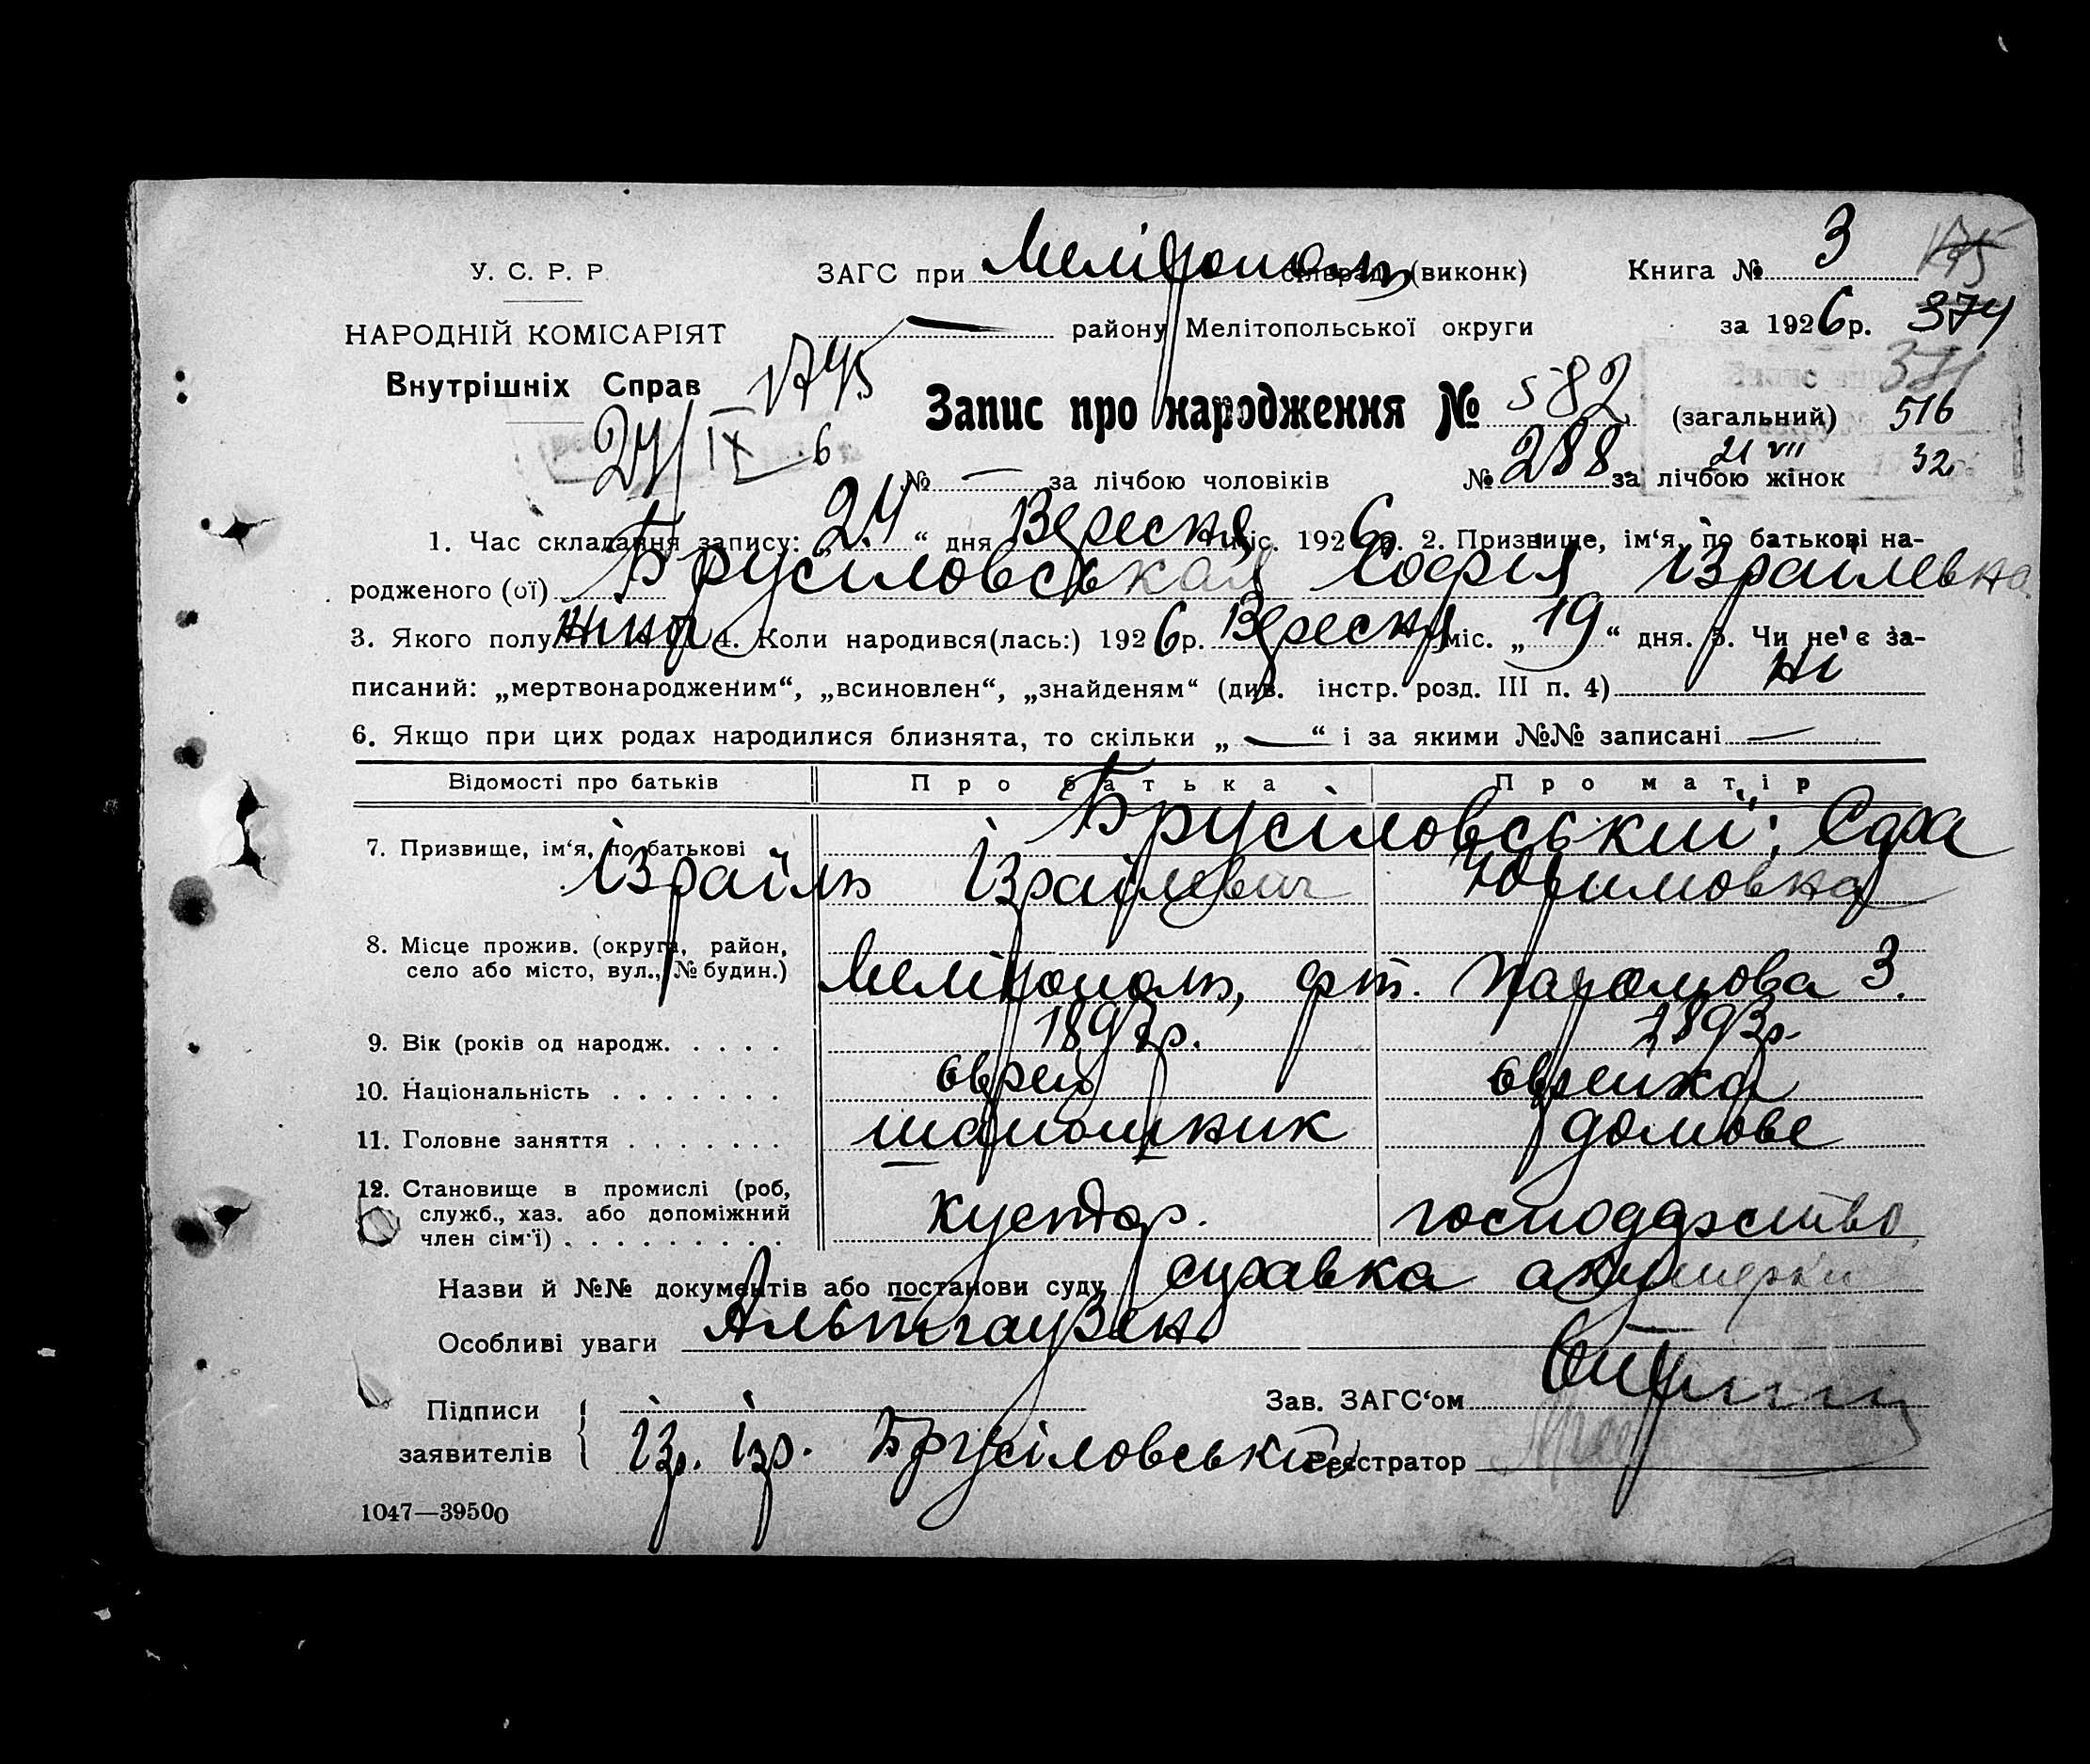 У. С. Р. Р.
НАРОДНІЙ КОМІСАРІЯТ
Внутрішніх Справ
1745
24/IX 6
ЗАГС при Мелітополь сільраді (виконк)
— району Мелітопольської округи
Книга № 3
за 1926 р. 374
Запис про народження № 582 (загальний) 516
21 VII 32
№ — за лічбою чоловіків № 288 за лічбою жінок
1. Час складання запису: „24“ дня Вересня міс. 1926 р. 2. Призвище, ім‘я, по батькові на-
родженого (ої) Брусіловськая Софія Ізраілевна
3. Якого полу жіноч 4. Коли народився(лась:) 1926 р. Вересня міс. „19“ дня. 5. Чи не є за-
писаний: „мертвонародженим“, „всиновлен“, „знайденям“ (див. інстр. розд. III п. 4) ні
6. Якщо при цих родах народилися близнята, то скільки „—“ і за якими №№ записані —
Відомості про батьків Про батька Про матір
7. Призвище, ім‘я, по батькові Брусіловський; Сара
Ізраїль Ізраїлевич
8. Місце прожив. (округа, район,
село або місто, вул., № будин.) Мелітополь, 3.
9. Вік (років од народж. . . . . 1897р. 1893р.
10. Національність . . . . . . . єврей єврейка
11. Головне заняття . . . . . . . шапошник домове
12. Становище в промислі (роб,
служб., хаз. або допоміжний
член сім‘ї) . . . . . . . . . кустар. господарство
Назви й №№ документів або постанови суду справка акушерки
Особливі уваги Альтгаузен
Підписи
заявителів
Ізр. Ізр. Брусіловський
Зав. ЗАГС‘ом
Реєстратор
1047—39500